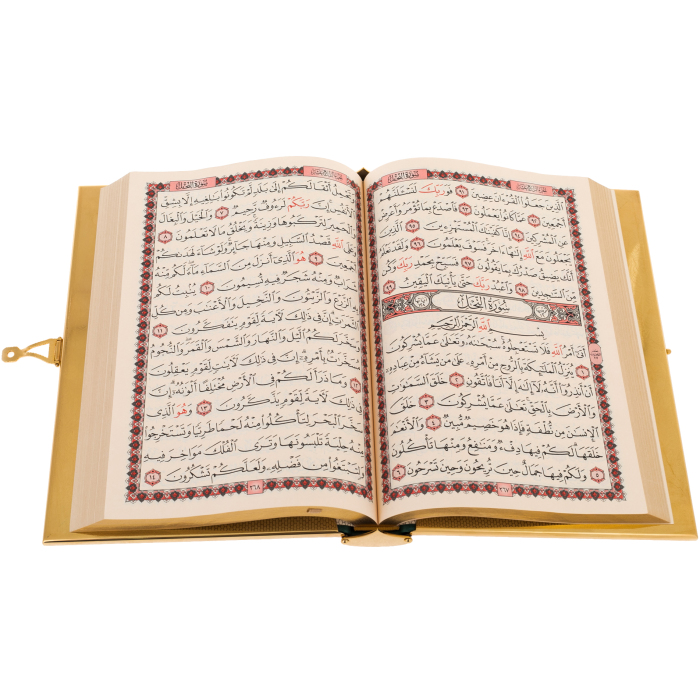 سُورَةُ النَّحْلِ
ٱلَّذِينَ جَعَلُوا۟ ٱلْقُرْءَانَ عِضِينَ ٩١ فَوَرَبِّكَ لَنَسْـَٔلَنَّهُمْ
أَجْمَعِينَ ٩٢ عَمَّا كَانُوا۟ يَعْمَلُونَ ٩٣ فَٱصْدَعْ بِمَا تُؤْمَرُ وَأَعْرِضْ
عَنِ ٱلْمُشْرِكِينَ ٩٤ إِنَّا كَفَيْنَٰكَ ٱلْمُسْتَهْزِءِينَ ٩٥ ٱلَّذِينَ
يَجْعَلُونَ مَعَ ٱللَّهِ إِلَٰهًا ءَاخَرَ فَسَوْفَ يَعْلَمُونَ ٩٦ وَلَقَدْ نَعْلَمُ
أَنَّكَ يَضِيقُ صَدْرُكَ بِمَا يَقُولُونَ ٩٧ فَسَبِّحْ بِحَمْدِ رَبِّكَ وَكُن
مِّنَ ٱلسَّٰجِدِينَ ٩٨ وَٱعْبُدْ رَبَّكَ حَتَّىٰ يَأْتِيَكَ ٱلْيَقِينُ ٩٩
سُورَةُ النَّحْلِ
بِسْمِ ٱللَّهِ ٱلرَّحْمَٰنِ ٱلرَّحِيمِ
أَتَىٰٓ أَمْرُ ٱللَّهِ فَلَا تَسْتَعْجِلُوهُ سُبْحَٰنَهُۥ وَتَعَٰلَىٰ عَمَّا يُشْرِكُونَ
١ يُنَزِّلُ ٱلْمَلَٰٓئِكَةَ بِٱلرُّوحِ مِنْ أَمْرِهِۦ عَلَىٰ مَن يَشَآءُ مِنْ عِبَادِهِۦٓ
أَنْ أَنذِرُوٓا۟ أَنَّهُۥ لَآ إِلَٰهَ إِلَّآ أَنَا۠ فَٱتَّقُونِ ٢ خَلَقَ ٱلسَّمَٰوَٰتِ
وَٱلْأَرْضَ بِٱلْحَقِّ تَعَٰلَىٰ عَمَّا يُشْرِكُونَ ٣ خَلَقَ
ٱلْإِنسَٰنَ مِن نُّطْفَةٍ فَإِذَا هُوَ خَصِيمٌ مُّبِينٌ ٤ وَٱلْأَنْعَٰمَ
خَلَقَهَا لَكُمْ فِيهَا دِفْءٌ وَمَنَٰفِعُ وَمِنْهَا تَأْكُلُونَ
٥ وَلَكُمْ فِيهَا جَمَالٌ حِينَ تُرِيحُونَ وَحِينَ تَسْرَحُونَ ٦
٢٦٧
سُورَةُ النَّحْلِ
وَتَحْمِلُ أَثْقَالَكُمْ إِلَىٰ بَلَدٍ لَّمْ تَكُونُوا۟ بَٰلِغِيهِ إِلَّا بِشِقِّ
ٱلْأَنفُسِ إِنَّ رَبَّكُمْ لَرَءُوفٌ رَّحِيمٌ ٧ وَٱلْخَيْلَ وَٱلْبِغَالَ
وَٱلْحَمِيرَ لِتَرْكَبُوهَا وَزِينَةً وَيَخْلُقُ مَا لَا تَعْلَمُونَ ٨
وَعَلَى ٱللَّهِ قَصْدُ ٱلسَّبِيلِ وَمِنْهَا جَآئِرٌ وَلَوْ شَآءَ لَهَدَىٰكُمْ
أَجْمَعِينَ ٩ هُوَ ٱلَّذِىٓ أَنزَلَ مِنَ ٱلسَّمَآءِ مَآءً لَّكُم مِّنْهُ
شَرَابٌ وَمِنْهُ شَجَرٌ فِيهِ تُسِيمُونَ ١٠ يُنۢبِتُ لَكُم بِهِ
ٱلزَّرْعَ وَٱلزَّيْتُونَ وَٱلنَّخِيلَ وَٱلْأَعْنَٰبَ وَمِن كُلِّ
ٱلثَّمَرَٰتِ إِنَّ فِى ذَٰلِكَ لَءَايَةً لِّقَوْمٍ يَتَفَكَّرُونَ ١١
وَسَخَّرَ لَكُمُ ٱلَّيْلَ وَٱلنَّهَارَ وَٱلشَّمْسَ وَٱلْقَمَرَ وَٱلنُّجُومُ
مُسَخَّرَٰتٌۢ بِأَمْرِهِۦٓ إِنَّ فِى ذَٰلِكَ لَءَايَٰتٍ لِّقَوْمٍ يَعْقِلُونَ
١٢ وَمَا ذَرَأَ لَكُمْ فِى ٱلْأَرْضِ مُخْتَلِفًا أَلْوَٰنُهُۥٓ إِنَّ
فِى ذَٰلِكَ لَءَايَةً لِّقَوْمٍ يَذَّكَّرُونَ ١٣ وَهُوَ ٱلَّذِى
سَخَّرَ ٱلْبَحْرَ لِتَأْكُلُوا۟ مِنْهُ لَحْمًا طَرِيًّا وَتَسْتَخْرِجُوا۟
مِنْهُ حِلْيَةً تَلْبَسُونَهَا وَتَرَى ٱلْفُلْكَ مَوَاخِرَ فِيهِ
وَلِتَبْتَغُوا۟ مِن فَضْلِهِۦ وَلَعَلَّكُمْ تَشْكُرُونَ ١٤
٢٦٨